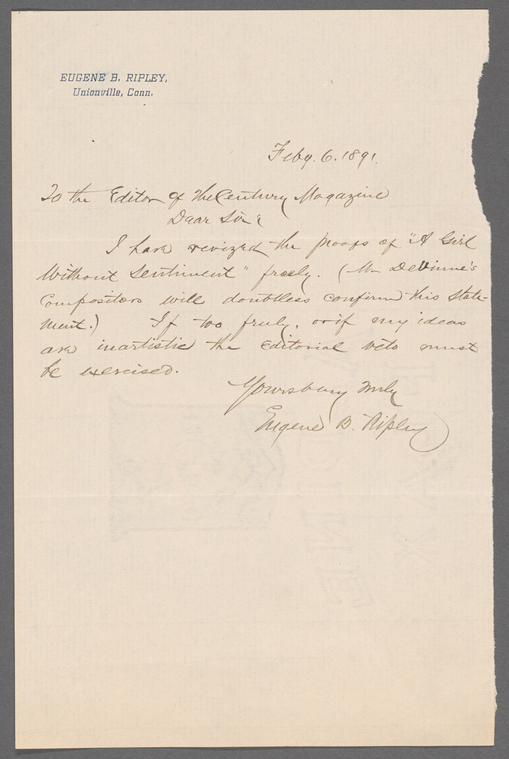 EUGENE B. RIPLEY,
Unionville, Conn.
Feby. 6. 1891.
To the Editor of The Century Magazine
Dear Sir:
I have revized the proofs of "A Girl
Without Sentiment" freely. (Mr DeVinne's
Compositors will doubtless confirm this state-
ment.) If too freely, or if my ideas
are inartistic the Editorial veto must
be exercised.
Yours very truly
Eugene B. Ripley